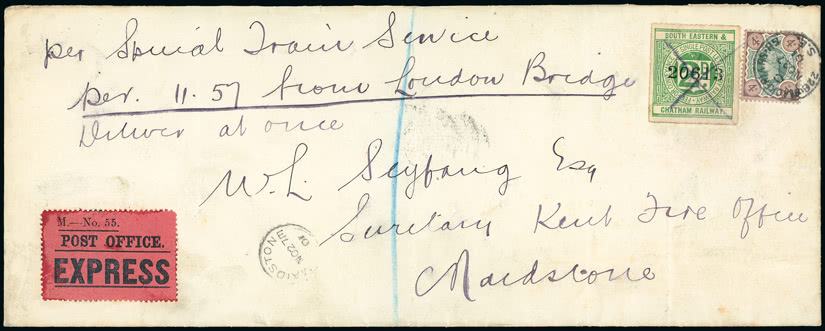 per Special Train Service
per. 11.57 from London Bridge
Deliver at once
W. L. Seyfang Esq
Secretary Kent Fire Office
Maidstone
SOUTH EASTERN &
20613
CHATHAM RAILWAY
M.—No. 55.
POST OFFICE.
EXPRESS